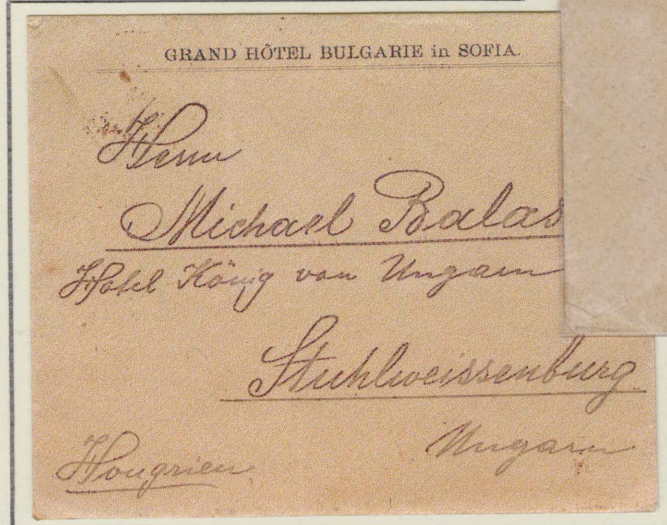 GRAND HÔTEL BULGARIE in SOFIA.
Herrn
Michael Balas
Hotel König von Ungarn
Stuhlweissenburg
Ungarn
Hougrien